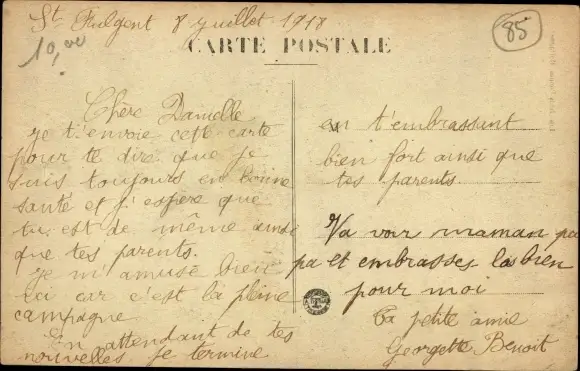 St Fulgent 8 juillet 1918
10,00
85
CARTE POSTALE
Chère Danielle
je t'envoie cette carte
pour te dire que je
suis toujours en bonne
santé et j'espère que
tu est de même ainsi
que tes parents.
je m'amuse bien
ici car c'est la pleine
campagne
En attendant de tes
nouvelles je termine
en t'embrassant
bien fort ainsi que
tes parents
Va voir maman pa
pa et embrasses les bien
pour moi
Ta petite amie
Georgette Benoit